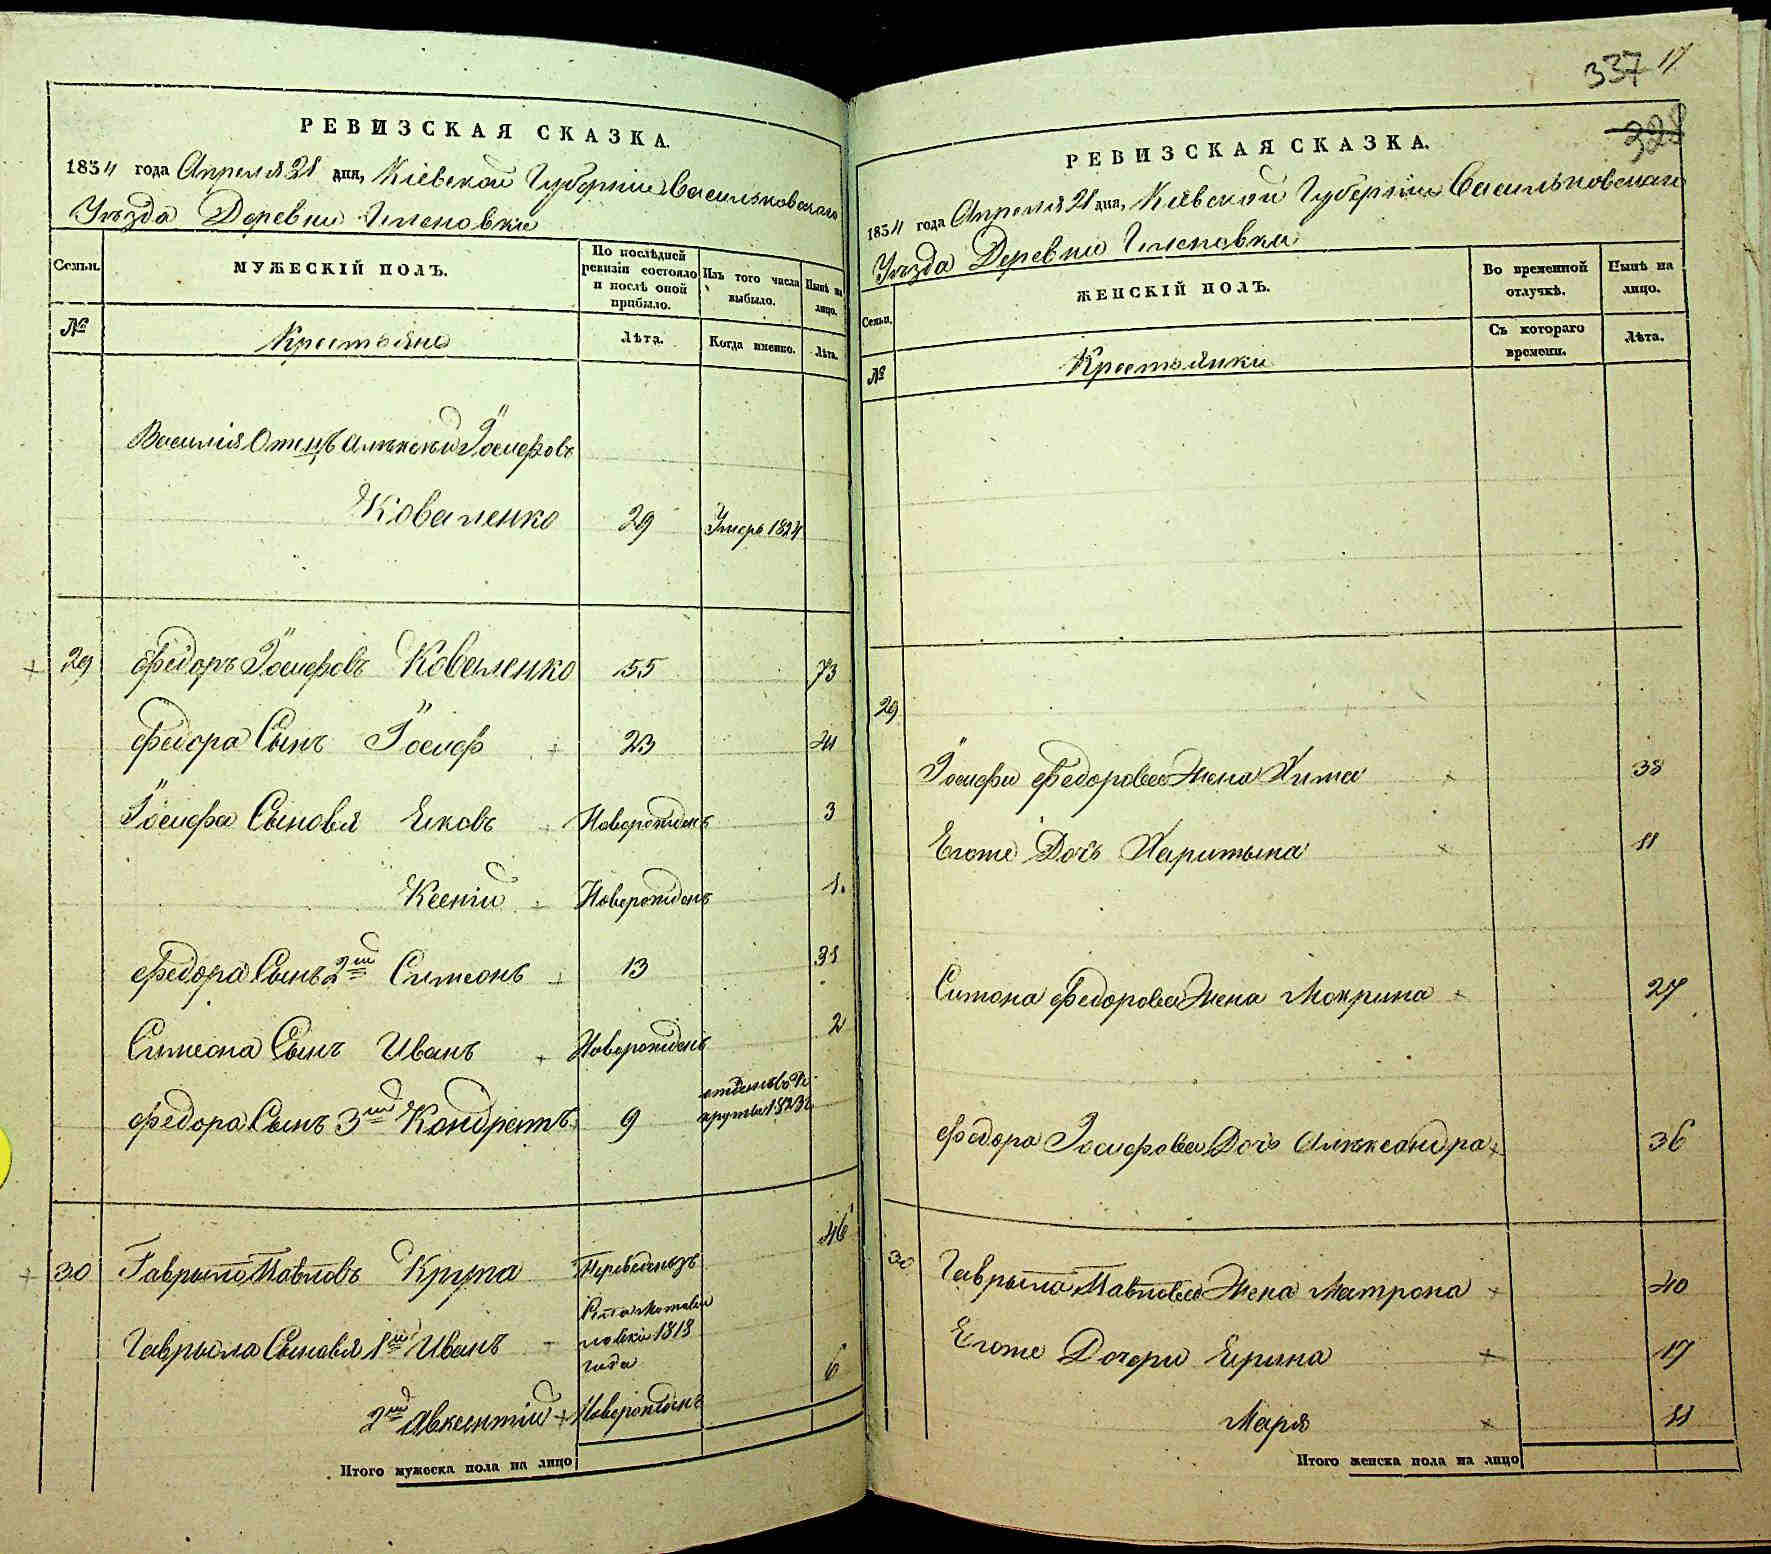 РЕВИЗСКАЯ СКАЗКА.
1834 года Апреля 21 дня, Кіевской Губерніи Васильковскаго
Уѣзда Деревни
Семьи.
МУЖЕСКІЙ ПОЛЪ.
По послѣдней ревизіи состояло и послѣ оной прибыло.
Изъ того числа выбыло.
Нынѣ на лицо.
№
Крестьяне
Лѣта.
Когда именно.
Лѣта.
Василія Отецъ Алексѣй Іосифовъ
Коваленко 29 Умеръ 1824
29 Федоръ Іосифовъ Коваленко 55 73
Федора Сынъ Іосиф 23 41
Іосифа Сыновья Яковъ Новорожденъ 3
Ксенпій Новорожденъ 1.
Федора Сынъ 2й Симеонъ 13 31
Симеона Сынъ Иванъ Новорожденъ 2
Федора Сынъ 3й Кондратъ 9
30 Гаврыло Павловъ Крупа Переведенъ изъ 46
1818
года
Гаврыла Сыновья 1й Иванъ 6
2й Авксентій Новорожденъ
Итого мужеска пола на лицо
337 17
328
РЕВИЗСКАЯ СКАЗКА.
1834 года Апреля 21 дня, Кіевской Губерніи Васильковскаго
Уѣзда Деревни
Семьи.
ЖЕНСКІЙ ПОЛЪ.
Во временной отлучкѣ.
Нынѣ на лицо.
№
Крестьянки
Съ котораго времени.
Лѣта.
29
Іосифа Федорова Жена Хима 38
Егоже Дочь Харитына 11
Симона Федорова Жена Мокрина 27
Федора Іосифова Дочь Александра 36
30 Гаврыла Павлова Жена Матрона 40
Егоже Дочери Ярина 17
Марія 11
Итого женска пола на лицо